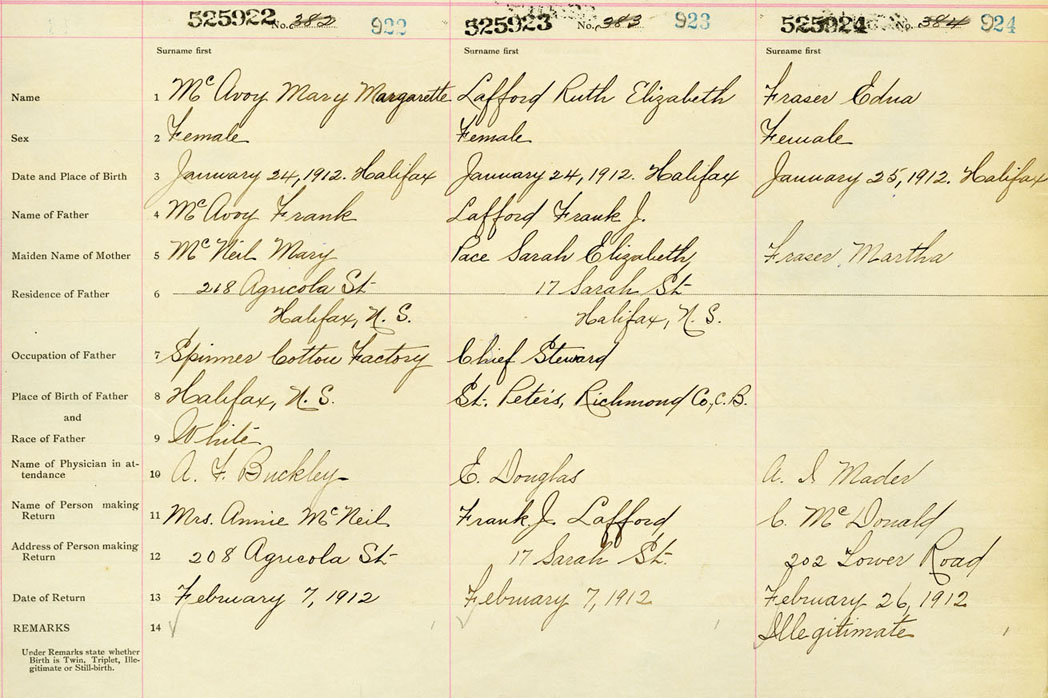 525922 No. 382 922 525923 No. 383 923 525924 No. 384 924
Surname first Surname first Surname first
Name 1 McAvoy Mary Margarette Lafford Ruth Elizabeth Fraser Edna
Sex 2 Female Female Female
Date and Place of Birth 3 January 24, 1912. Halifax January 24, 1912. Halifax January 25, 1912. Halifax
Name of Father 4 McAvoy Frank Lafford Frank J.
Maiden Name of Mother 5 McNeil Mary Pace Sarah Elizabeth Fraser Martha
Residence of Father 6 208 Agricola St 17 Sarah St
Halifax, N. S. Halifax, N. S.
Occupation of Father 7 Spinner Cotton Factory Chief Steward
Place of Birth of Father 8 Halifax, N. S. St. Peter's, Richmond Co., C. B.
and
Race of Father 9 White
Name of Physician in at-
tendance 10 A. F. Buckley E. Douglas A. I Mader
Name of Person making
Return 11 Mrs. Annie McNeil Frank J. Lafford C. McDonald
Address of Person making
Return 12 208 Agricola St 17 Sarah St. 202 Lower Road
Date of Return 13 February 7, 1912 February 7, 1912 February 26, 1912
REMARKS 14 Illegitimate
Under Remarks state whether
Birth is Twin, Triplet, Ille-
gitimate or Still-birth.